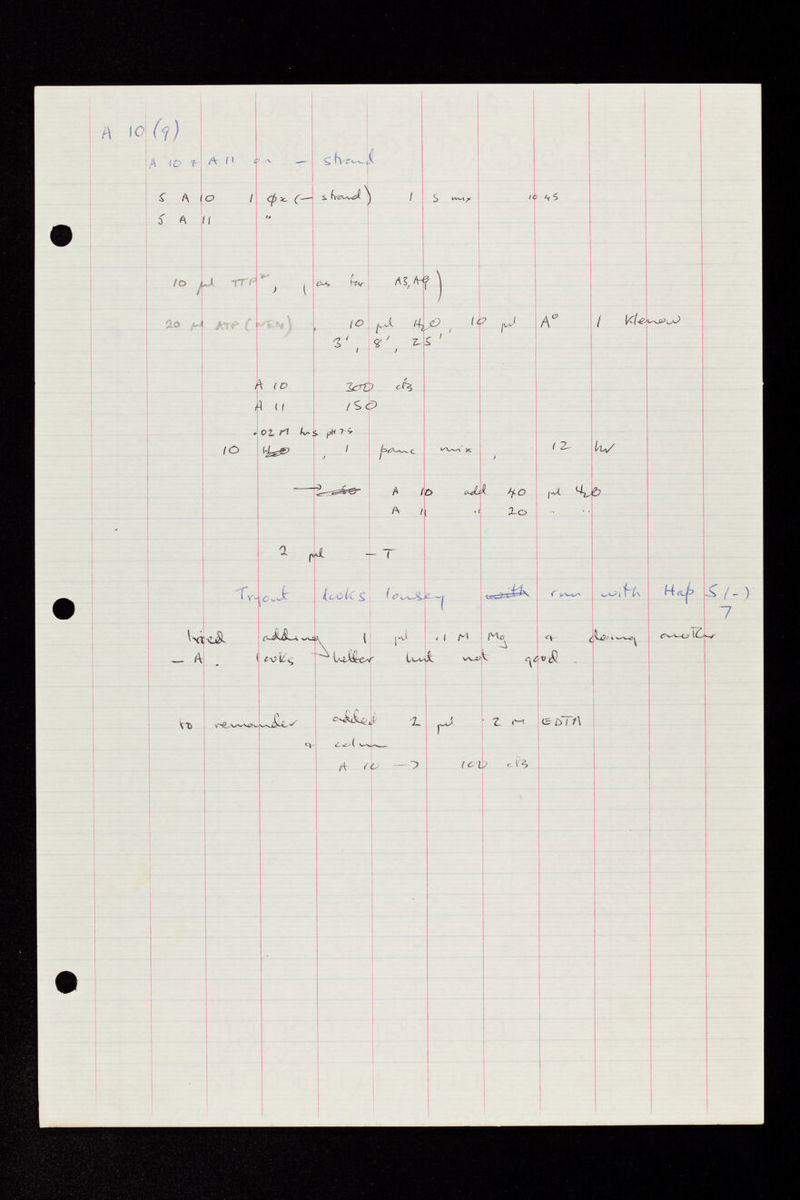 A 10 (9)
A 10 & A 11 on — strand
5 A 10 1 φx (— strand) 1 S mix 10 45
5 A 11 "
10 μl TTP, , (as for A3, A9)
20 μl ATP (NEN) , 10 μl H2O, 10 μl A° 1 Klenow
3', 8', 25'
A 10 300 c/s
A 11 150
.02 M tris pH 7.5
10 H2O , 1 panc mix , 12 hr
→ A 10 add 40 μl H2O
A 11 " 20 " "
2 μl — T
Tryout looks lousey with run with Hap 5 (-)
7
tried adding 1 μl .1 M Mg & doing another
— A . looks better but not good .
to remainder added 2 μl .2 M EDTA
& column
A 10 → 100 c/s